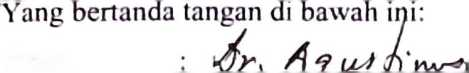 Yang bertanda tangan di bawah ini:
: Dr. Agustinus